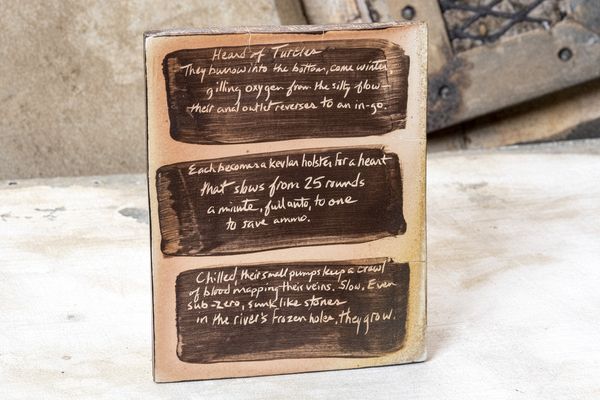 Heard of Turtles
They burrow into the bottom, come winter
gilling oxygen from the silty flow—
their anal outlet reverses to an in-go.
Each becomes a kevlar holster for a heart
that slows from 25 rounds
a minute, full auto, to one
to save ammo.
Chilled, their small pumps keep a crawl
of blood mapping their veins. Slow. Even
sub-zero, sunk like stones
in the river's frozen holes, they grow.